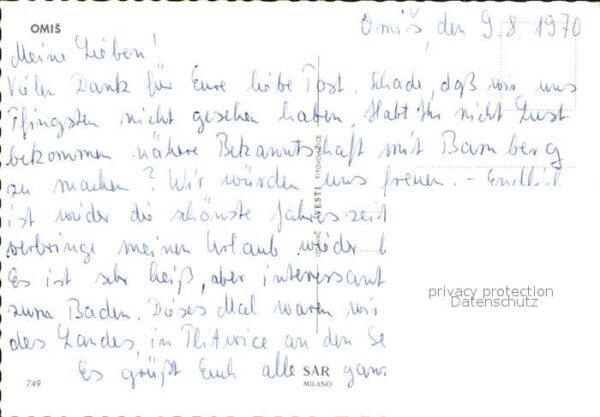 OMIŠ
Omiš, den 9.8.1970
Meine Lieben!
Vielen Dank für Eure liebe Post. Schade, daß wir uns
Pfingsten nicht gesehen haben. Habt Ihr nicht Lust
bekommen nähere Bekanntschaft mit Bamberg
zu machen? Wir würden uns freuen. – Endlich
ist wieder die schönste Jahreszeit
verbringe meinen Urlaub wieder
Es ist sehr heiß, aber interessant
zum Baden. Dieses Mal waren wir
des Landes, in Plitvice an den Se
Es grüßt Euch alle ganz
VESTI TITOVO UŽICE
privacy protection
Datenschutz
749
SAR
MILANO